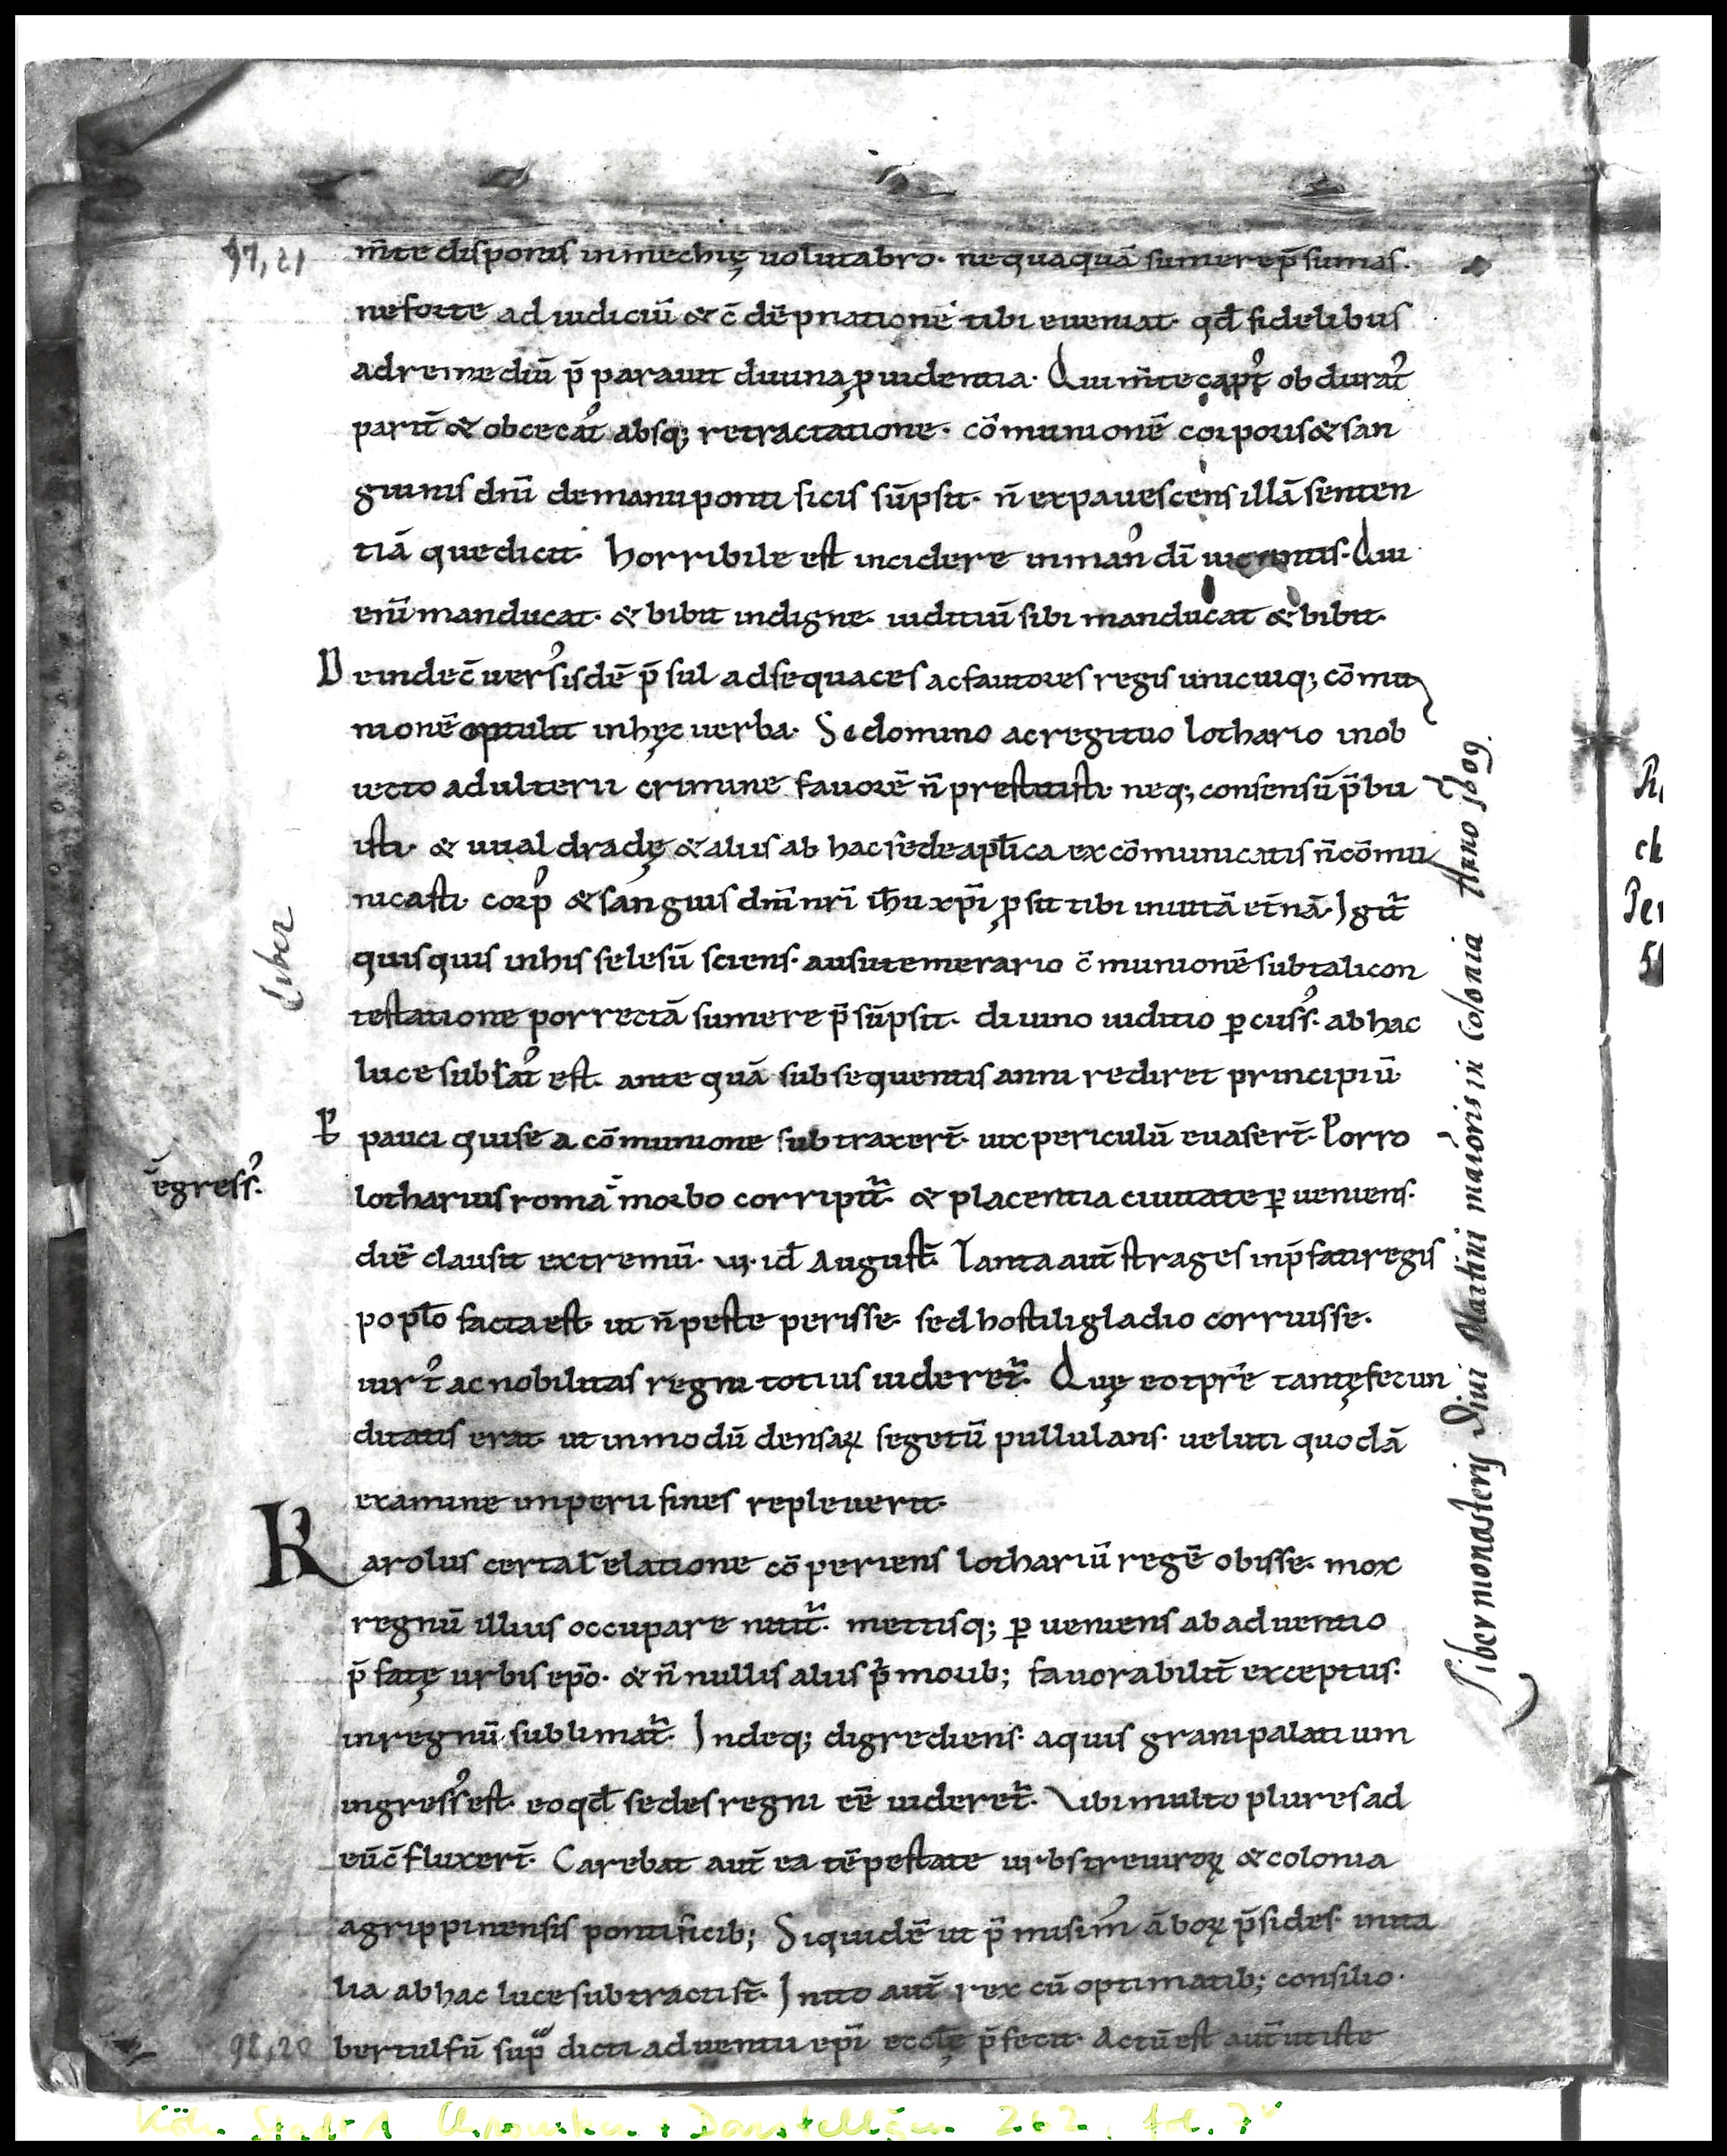 97,21
m̅te disponis in mechię uolutabro. nequaquā sumere p̄sumas.
ne forte ad iudiciū & c̄dēpnationē tibi eueniat. qd̄ fidelibus
ad remediū p̄parauit diuina ꝓuidentia. Qui m̅te capt᾽ obdurat᾽
parit̄ & obcecat᾽ absq; retractatione. cōmunionē corporis & san
guinis dn̄i de manu pontificis sūpsit. n̄ expauescens illā senten
tiā que dicit. Horribile est incidere in man᾽ dī uiuentis. Qui
enī manducat. & bibit indigne. iuditiū sibi manducat & bibit.
Deinde c̄uers᾽ isdē p̄sul ad sequaces ac fautores regis unicuiq; cōmu
nionē optulit in hęc uerba. Si domino ac regi tuo lothario in ob
iecto adulterii crimine fauorē n̄ prestitisti. neq; consensū p̄bu
isti. & uualdradę & aliis ab hac sede apl̄ica excōmunicatis n̄ cōmu
nicasti. corp᾽ & sanguis dn̄i nr̄i ih̄u xp̄i ꝓsit tibi in uitā et̄nā. Igit̄
quisquis in his se lesū sciens. ausu temerario c̄munionē sub tali con
testatione porrectā sumere p̄sūpsit. diuino iuditio ꝑcuss᾽. ab hac
luce sublat᾽ est. ante quā subsequentis anni rediret principiū.
P pauci qui se a cōmunione subtraxer̄t. uix periculū euaser̄t. Porro
lotharius romā morbo corripit̄. & placentia ciuitate ꝑueniens.
ēgress᾽.
diē clausit extremū. vi. id̄ August̄. Tanta aut̄ strages in p̄fati regis
popl̄o facta est. ut n̄ peste perisse. sed hostili gladio corruisse.
uirt᾽ ac nobilitas regni totius uideret̄. Quę eo tp̄re tantę fecun
ditatis erat. ut in modū densaꝝ segetū pullulans. ueluti quodā
examine imperii fines repleuerit.
Karolus certa relatione cōperiens lothariū regē obisse. mox
regnū illius occupare nitit̄. mettisq; ꝑueniens ab aduentio
p̄fatę urbis epō. & n̄nullis aliis p̄moribͥ; fauorabilit̄ exceptus.
in regnū sublimat̄. Indeq; digrediens. aquis grani palatium
ingress᾽ est. eo qd̄ sedes regni eē uideret̄. Vbi multo plures ad
eū c̄fluxer̄t. Carebat aut̄ ea tēpestate urbs treuiroꝝ & colonia
agrippinensis pontificib; Siquidē ut p̄misim᾽ āboꝝ p̄sides. in ita
lia ab hac luce subtracti st̄. Inito aut̄ rex cū optimatib; consilio.
98,20
bertulfū sup̄ dicti aduentii ep̄i eccl̄ę p̄fecit. Actū est aut̄ ut iste
Liber
Liber monasterij Diui Martini maioris in Colonia Anno 1609.
Köln StadtA Chroniken u. Darstellgn. 262, fol. 7v